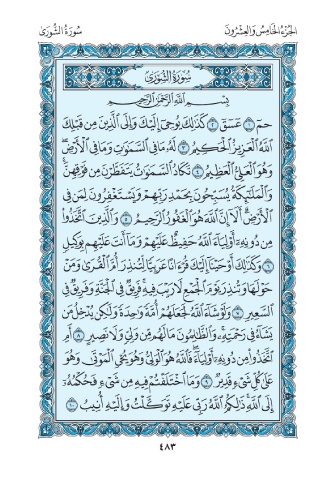 الجزء الخامس والعشرون
سورة الشورى
سورة الشورى
بسم الله الرحمن الرحيم
حم ١ عسق ٢ كذلك يوحي إليك وإلى الذين من قبلك
الله العزيز الحكيم ٣ له ما في السموت وما في الأرض
وهو العلي العظيم ٤ تكاد السموت يتفطرن من فوقهن
والملئكة يسبحون بحمد ربهم ويستغفرون لمن في
الأرض ألا إن الله هو الغفور الرحيم ٥ والذين اتخذوا
من دونه أولياء الله حفيظ عليهم وما أنت عليهم بوكيل
٦ وكذلك أوحينا إليك قرءانا عربيا لتنذر أم القرى ومن
حولها وتنذر يوم الجمع لا ريب فيه فريق في الجنة وفريق في
السعير ٧ ولو شاء الله لجعلهم أمة وحدة ولكن يدخل من
يشاء في رحمته والظلمون ما لهم من ولي ولا نصير ٨ أم
اتخذوا من دونه أولياء فالله هو الولي وهو يحي الموتى وهو
على كل شيء قدير ٩ وما اختلفتم فيه من شيء فحكمه
إلى الله ذلكم الله ربي عليه توكلت وإليه أنيب ١٠
٤٨٣